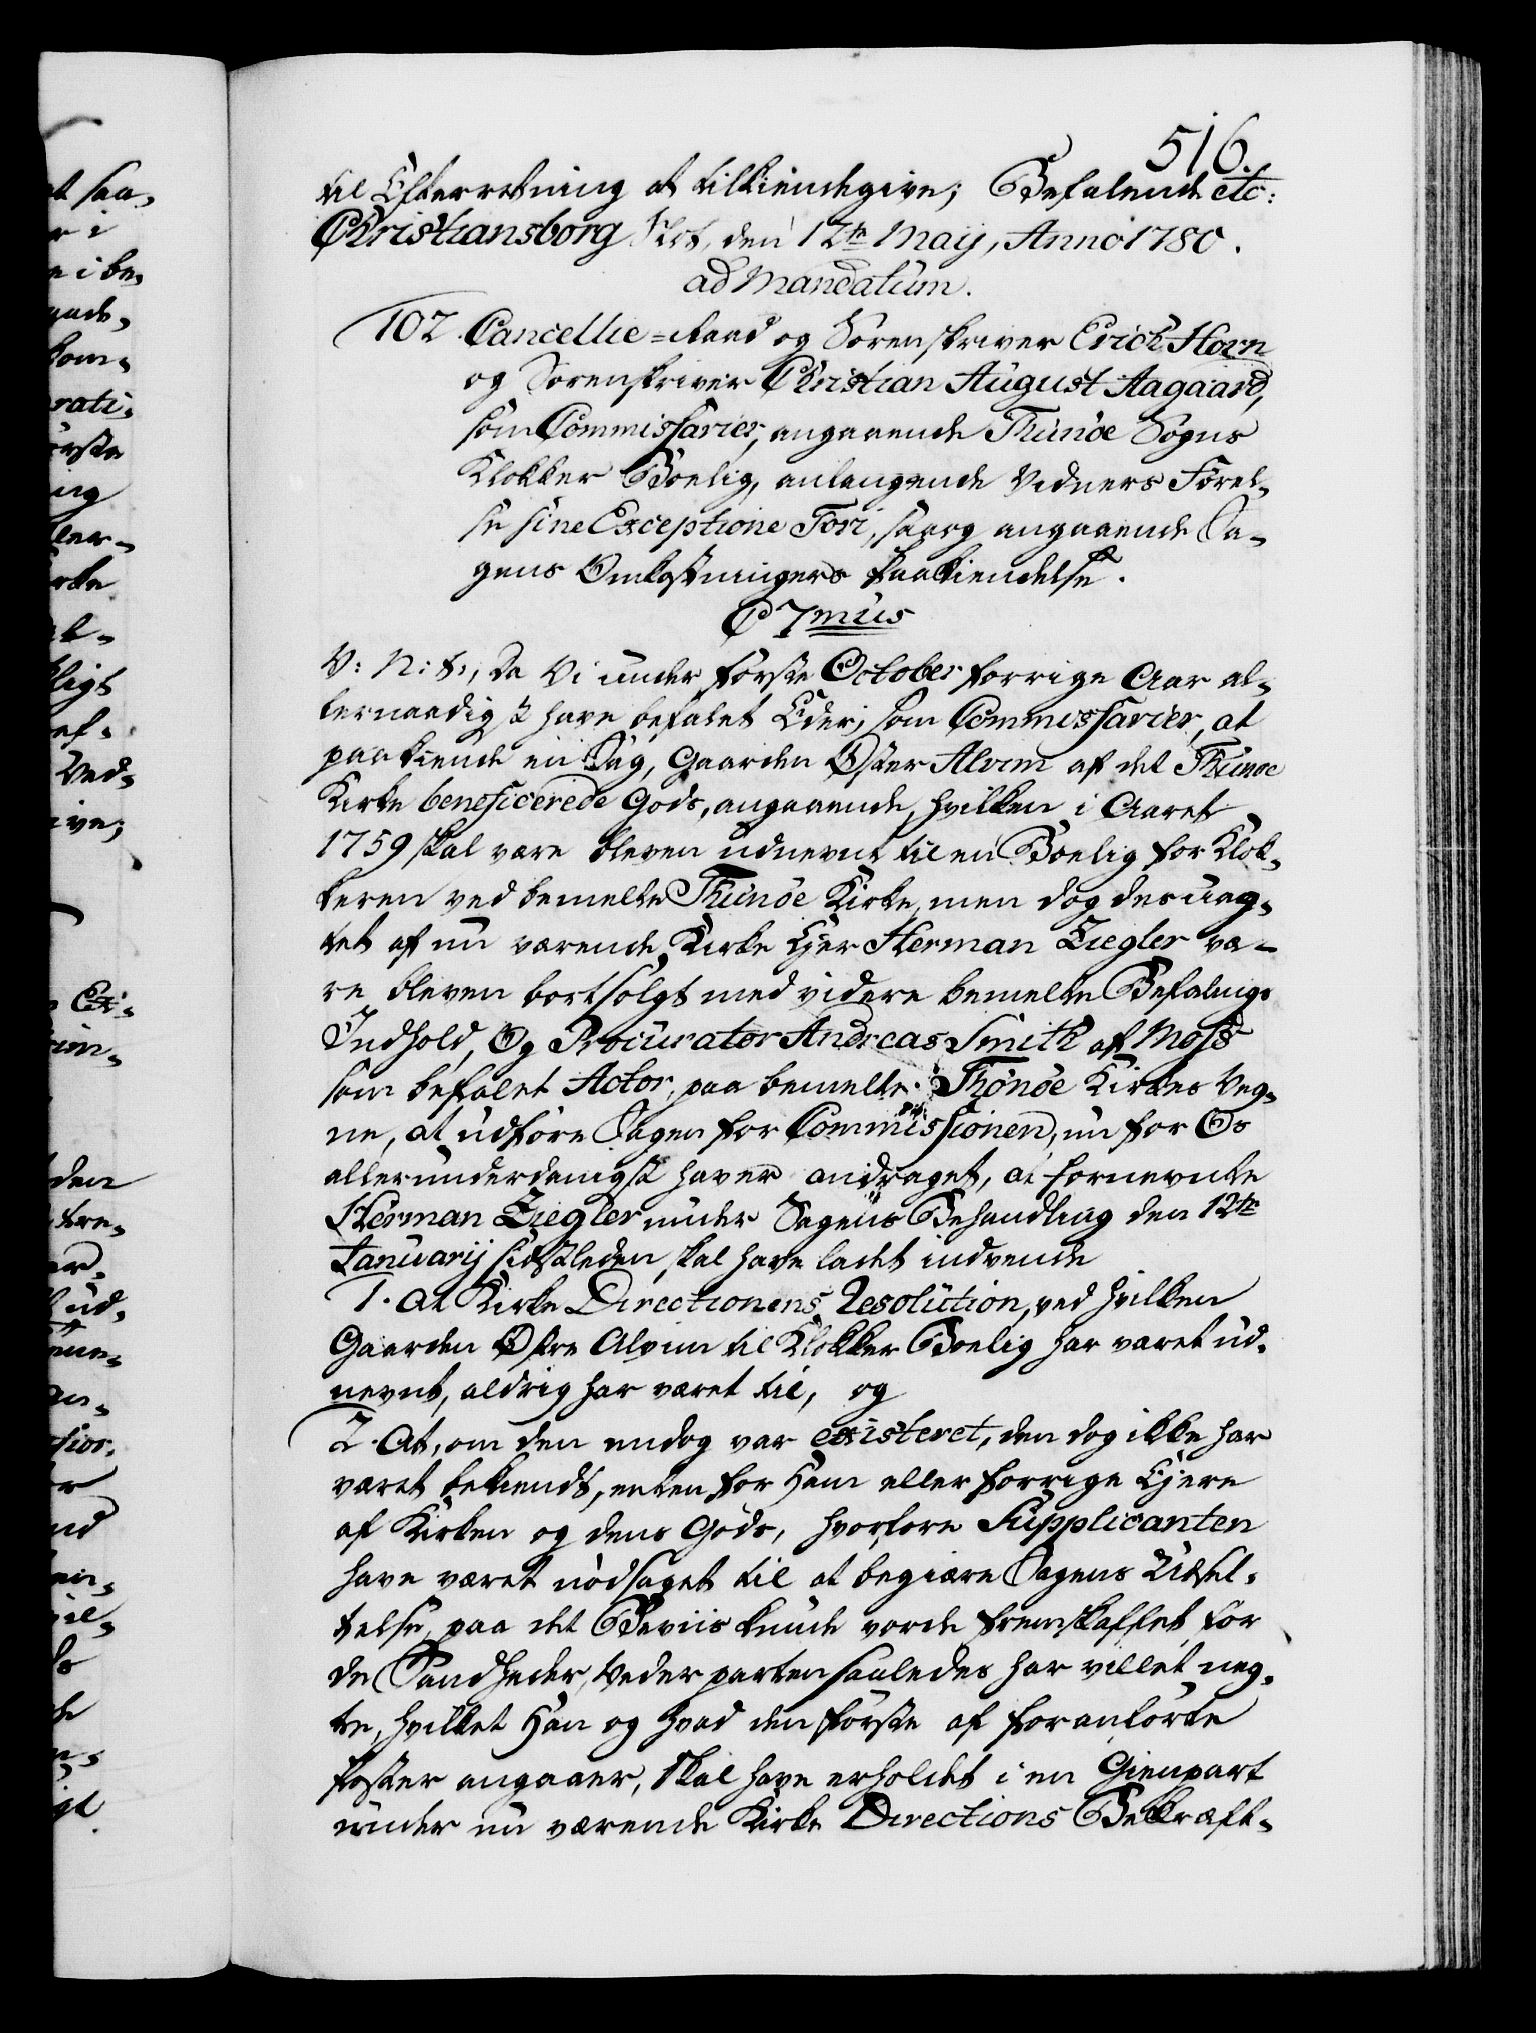 516.
til Efterretning at tilkiendegive; Befalende etc:
Christiansborg Slot, den 12te Maij, Anno 1780.
ad Mandatum.
102. Cancellie-Raad og Sorenskriver Erich Horn
og Sorenskriver Christian August Aagaard,
som Commissarier, angaaende Thunöe Sogns
Klokker Boelig, anlangende Vidners Förel-
se sine Exceptione Fori, saa og angaaende Sa-
gens Omkostningers Paakiendelse.
C 7mus
V: N: t:, Da Vi under förste October forrige Aar al-
lernaadigst have befalet Eder, som Commissarier, at
paakiende en Sag, Gaarden Öster Alvim af det Thunöe
Kirke beneficerede Gods, angaaende, hvilken i Aaret
1759 skal være bleven udnevnt til en Boelig for Klok-
keren ved bemelte Thunöe Kirke, men dog desuag-
tet af nu værende Kirke Ejer Herman Ziegler væ-
re bleven bortsolgt med videre bemelte Befalings
Indhold, Og Procurator Andreas Smith af Moss
som befalet Actor, paa bemelte Thönöe Kirkes Veg-
ne, at udföre Sagen for Commissionen, nu for Os
allerunderdanigst haver andraget, at fornevnte
Herman Ziegler under Sagens Behandling den 12te
Januarij sidstleden, skal have ladet indvende
1. At Kirke Directionens Resolution, ved hvilken
Gaarden Östre Alvim til Klokker Boelig har været ud-
nevnt, aldrig har været til, og
2. At, om den endog var existeret, den dog ikke har
været bekiendt, enten for Ham eller forrige Ejere
af Kirken og dens Gods, hvorfore Supplicanten
have været nödsaget til at begiære Sagens Udsæt-
telse, paa det Beviis kunde vorde fremskaffet for
de Sandheder, Veder parten saaledes har villet neg-
te, hvilket Han og hvad den förste af foranförte
Poster angaaer, skal have erholdet i en Gienpart
under nu værende Kirke Directions Bekræft-